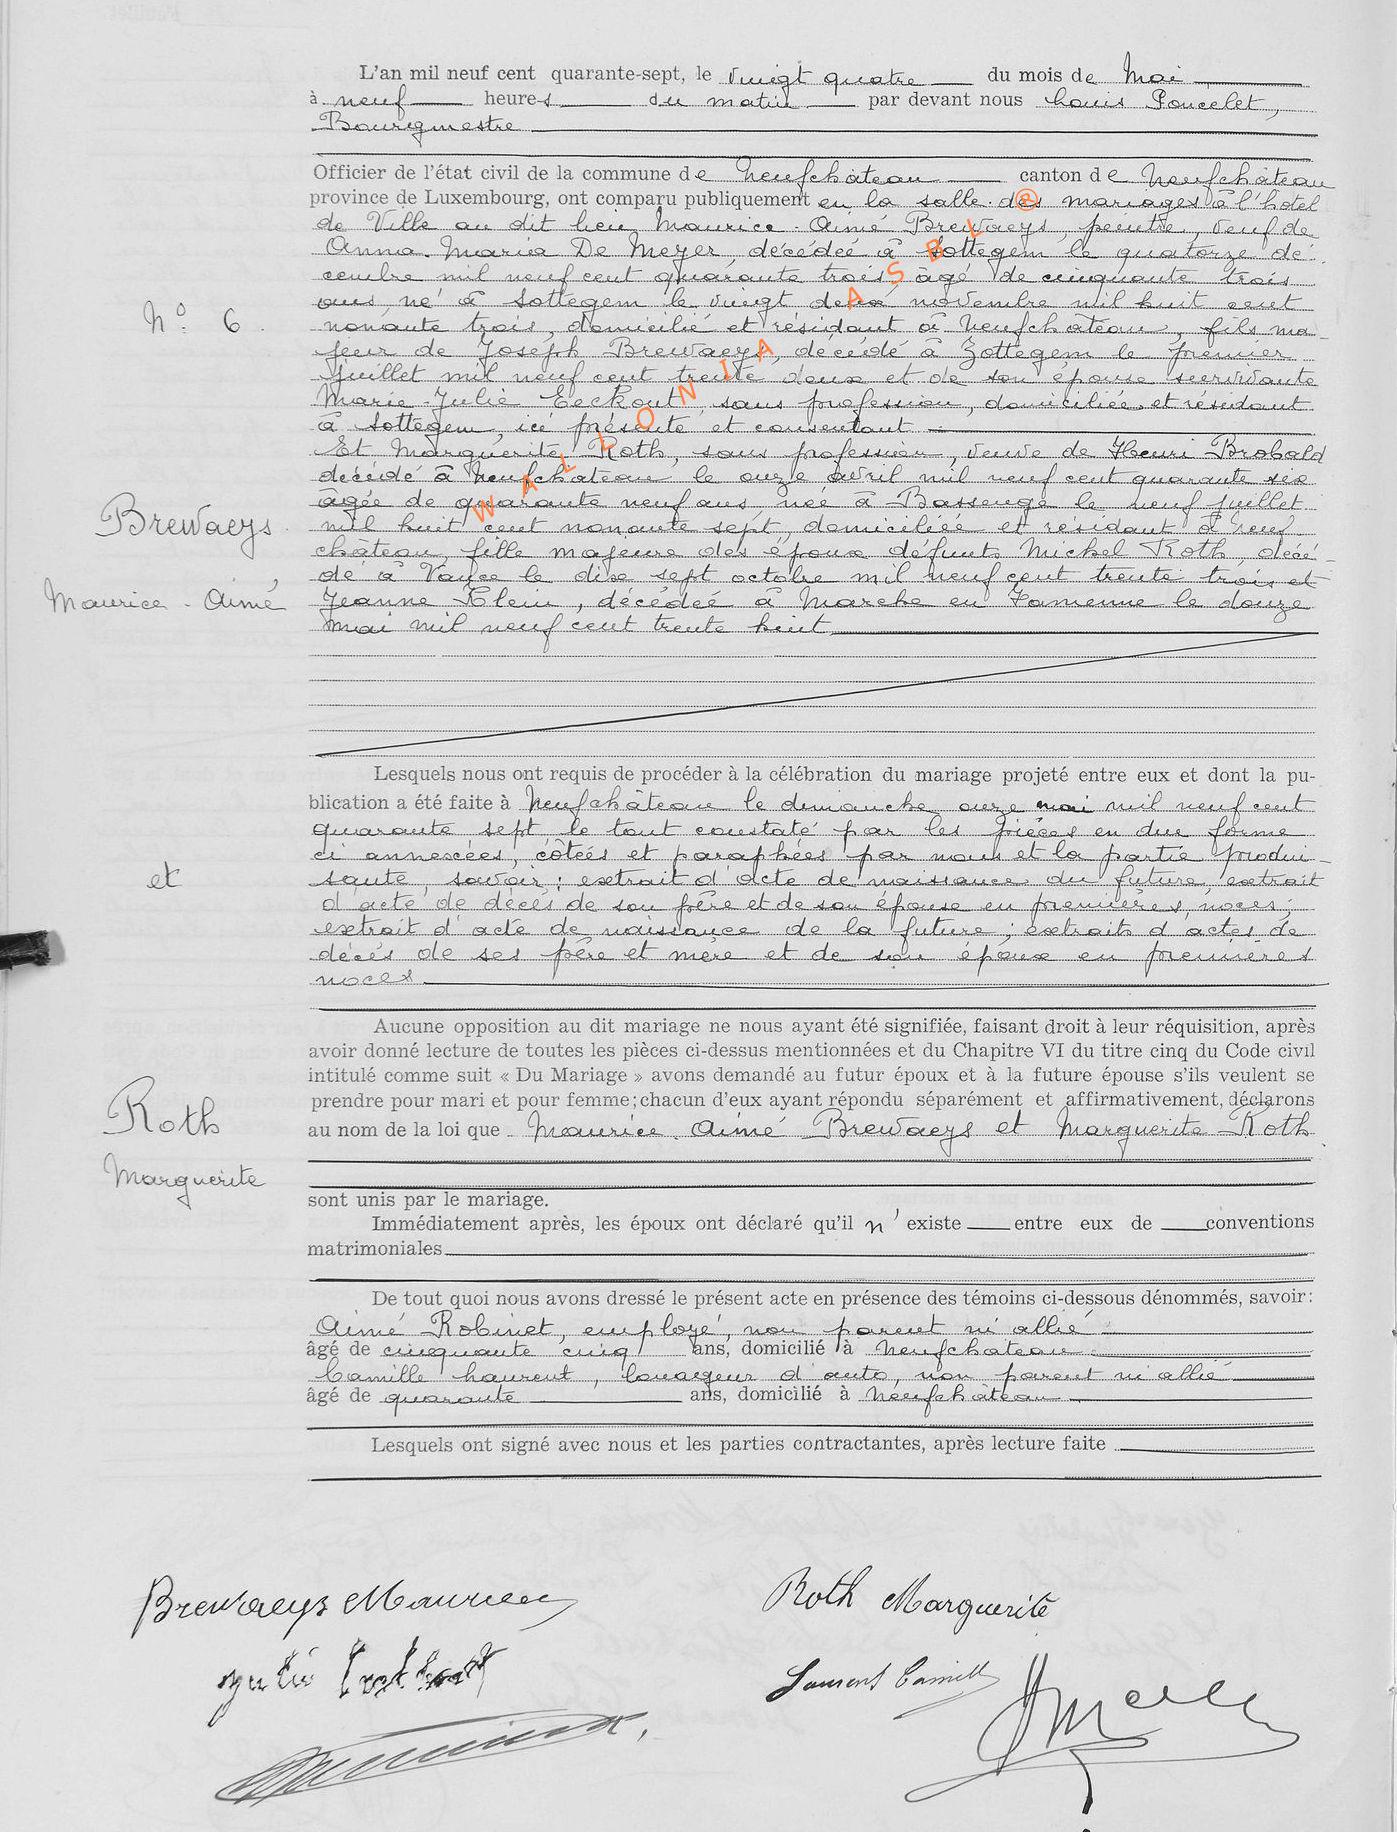 L'an mil neuf cent quarante-sept, le vingt quatre du mois de Mai
à neuf heures du matin par devant nous Louis Poncelet,
Bourgmestre
Officier de l'état civil de la commune de Neufchâteau canton de Neufchâteau
province de Luxembourg, ont comparu publiquement en la salle des mariages à l'hôtel
de Ville au dit lieu Maurice-Aimé Brewaeys, peintre, veuf de
Anna-Maria De Meyer, décédée à Sottegem le quatorze dé-
cembre mil neuf cent quarante trois, âgé de cinquante trois
ans, né à Sottegem le vingt deux novembre mil huit cent
nonante trois, domicilié et résidant à Neufchâteau, fils ma-
jeur de Joseph Brewaeys, décédé à Zottegem le premier
juillet mil neuf cent trente deux et de son épouse survivante
Marie-Julie Eeckout, sans profession, domiciliée et résidant
à Sottegem, ici présente et consentant
Et Marguerite Roth, sans profession, veuve de Henri Brobald
décédé à Neufchateau le onze avril mil neuf cent quarante six
âgée de quarante neuf ans, née à Bassenge le neuf juillet
mil huit cent nonante sept, domiciliée et résidant à Neuf
château, fille majeure des époux défunts Michel Roth, décé-
dé à Vance le dix sept octobre mil neuf cent trente trois et
Jeanne Klein, décédée à Marche en Famenne le douze
mai mil neuf cent trente huit
WALLONIA ASBL ®
N° 6.
Brewaeys
Maurice-Aimé
et
Roth
Marguerite
Lesquels nous ont requis de procéder à la célébration du mariage projeté entre eux et dont la pu-
blication a été faite à Neufchâteau le dimanche onze mai mil neuf cent
quarante sept le tout constaté par les pièces en due forme
ci annexées, côtées et paraphées par nous et la partie produi-
sante, savoir: extrait d'acte de naissance du future, extrait
d'acte de décès de son père et de son épouse en premières noces;
extrait d'acte de naissance de la future; extraits d'actes de
décès de ses père et mère et de son époux en premières
noces
Aucune opposition au dit mariage ne nous ayant été signifiée, faisant droit à leur réquisition, après
avoir donné lecture de toutes les pièces ci-dessus mentionnées et du Chapitre VI du titre cinq du Code civil
intitulé comme suit « Du Mariage » avons demandé au futur époux et à la future épouse s'ils veulent se
prendre pour mari et pour femme; chacun d'eux ayant répondu séparément et affirmativement, déclarons
au nom de la loi que Maurice Aimé Brewaeys et Marguerite Roth
sont unis par le mariage.
Immédiatement après, les époux ont déclaré qu'il n'existe entre eux de conventions
matrimoniales
De tout quoi nous avons dressé le présent acte en présence des témoins ci-dessous dénommés, savoir:
Aimé Robinet, employé, non parent ni allié
âgé de cinquante cinq ans, domicilié à Neufchateau
Camille Laurent, louageur d'auto, non parent ni allié
âgé de quarante ans, domicilié à Neufchâteau
Lesquels ont signé avec nous et les parties contractantes, après lecture faite
Brewaeys Maurice
Roth Marguerite
Julie
Laurent Camille